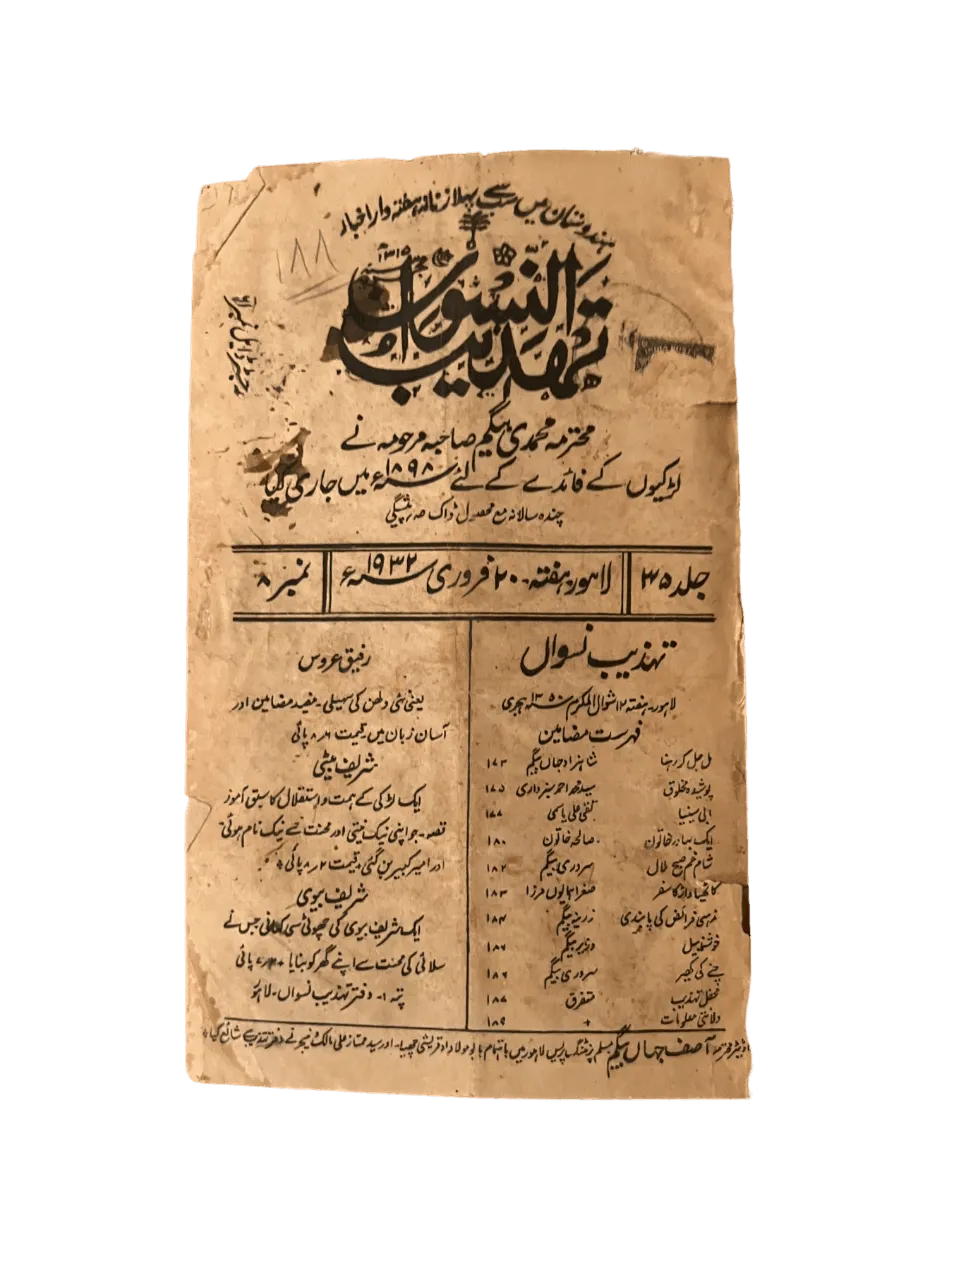 ہندوستان میں سب سے پہلا زنانہ ہفتہ وار اخبار
۱۸۸
۱۳۱۵
تہذیب النسواں
رجسٹرڈ ایل نمبر
محترمہ محمدی بیگم صاحبہ مرحومہ نے
لڑکیوں کے فائدے کے لئے ۱۸۹۸ء میں جاری کیا
چندہ سالانہ مع محصول ڈاک پیشگی
جلد ۳۵
لاہور ہفتہ - ۲۰ فروری ۱۹۳۲ء
نمبر ۸
تہذیب نسواں
لاہور - ہفتہ ۱۲ شوال المکرم ۱۳۵۰ ہجری
فہرست مضامین
مل جل کر رہنا شاہزاد جہاں بیگم ۱۷۳
پوشیدہ مخلوق سید محمد احمد سبزواری ۱۷۵
ابی سینیا ۱۷۷
ایک بہادر خاتون صالحہ خاتون ۱۸۰
شام غم صبح ملال سروری بیگم ۱۸۲
کاٹھیاواڑ کا سفر صغرا ہمایوں مرزا ۱۸۳
مذہبی فرائض کی پابندی زرینہ بیگم ۱۸۴
خوشنما بیل وزیر بیگم ۱۸۶
چنے کی کھیر سروری بیگم ۱۸۶
محفل تہذیب متفرق ۱۸۷
ولائتی معلومات + ۱۸۹
رفیق عروس
یعنی نئی دلھن کی سہیلی - مفید مضامین اور
آسان زبان میں - قیمت ۶/ ۸ پائی
شریف بیٹی
ایک لڑکی کے ہمت و استقلال کا سبق آموز
قصہ - جو اپنی نیک نیتی اور محنت سے نیک نام ہوئی
اور امیر کبیر بن گئی + قیمت ۲/ ۸ پائی +
شریف بیوی
ایک شریف بیوی کی چھوٹی سی کہانی جس نے
سلائی کی محنت سے اپنے گھر کو بنایا + پائی
پتہ :- دفتر تہذیب نسواں - لاہور
ایڈیٹر محترمہ آصف جہاں بیگم مسلم پرنٹنگ پریس لاہور میں باہتمام بابو مولا داد قریشی چھپا - اور سید ممتاز علی مالک و منیجر نے دفتر تہذیب سے شائع کیا +